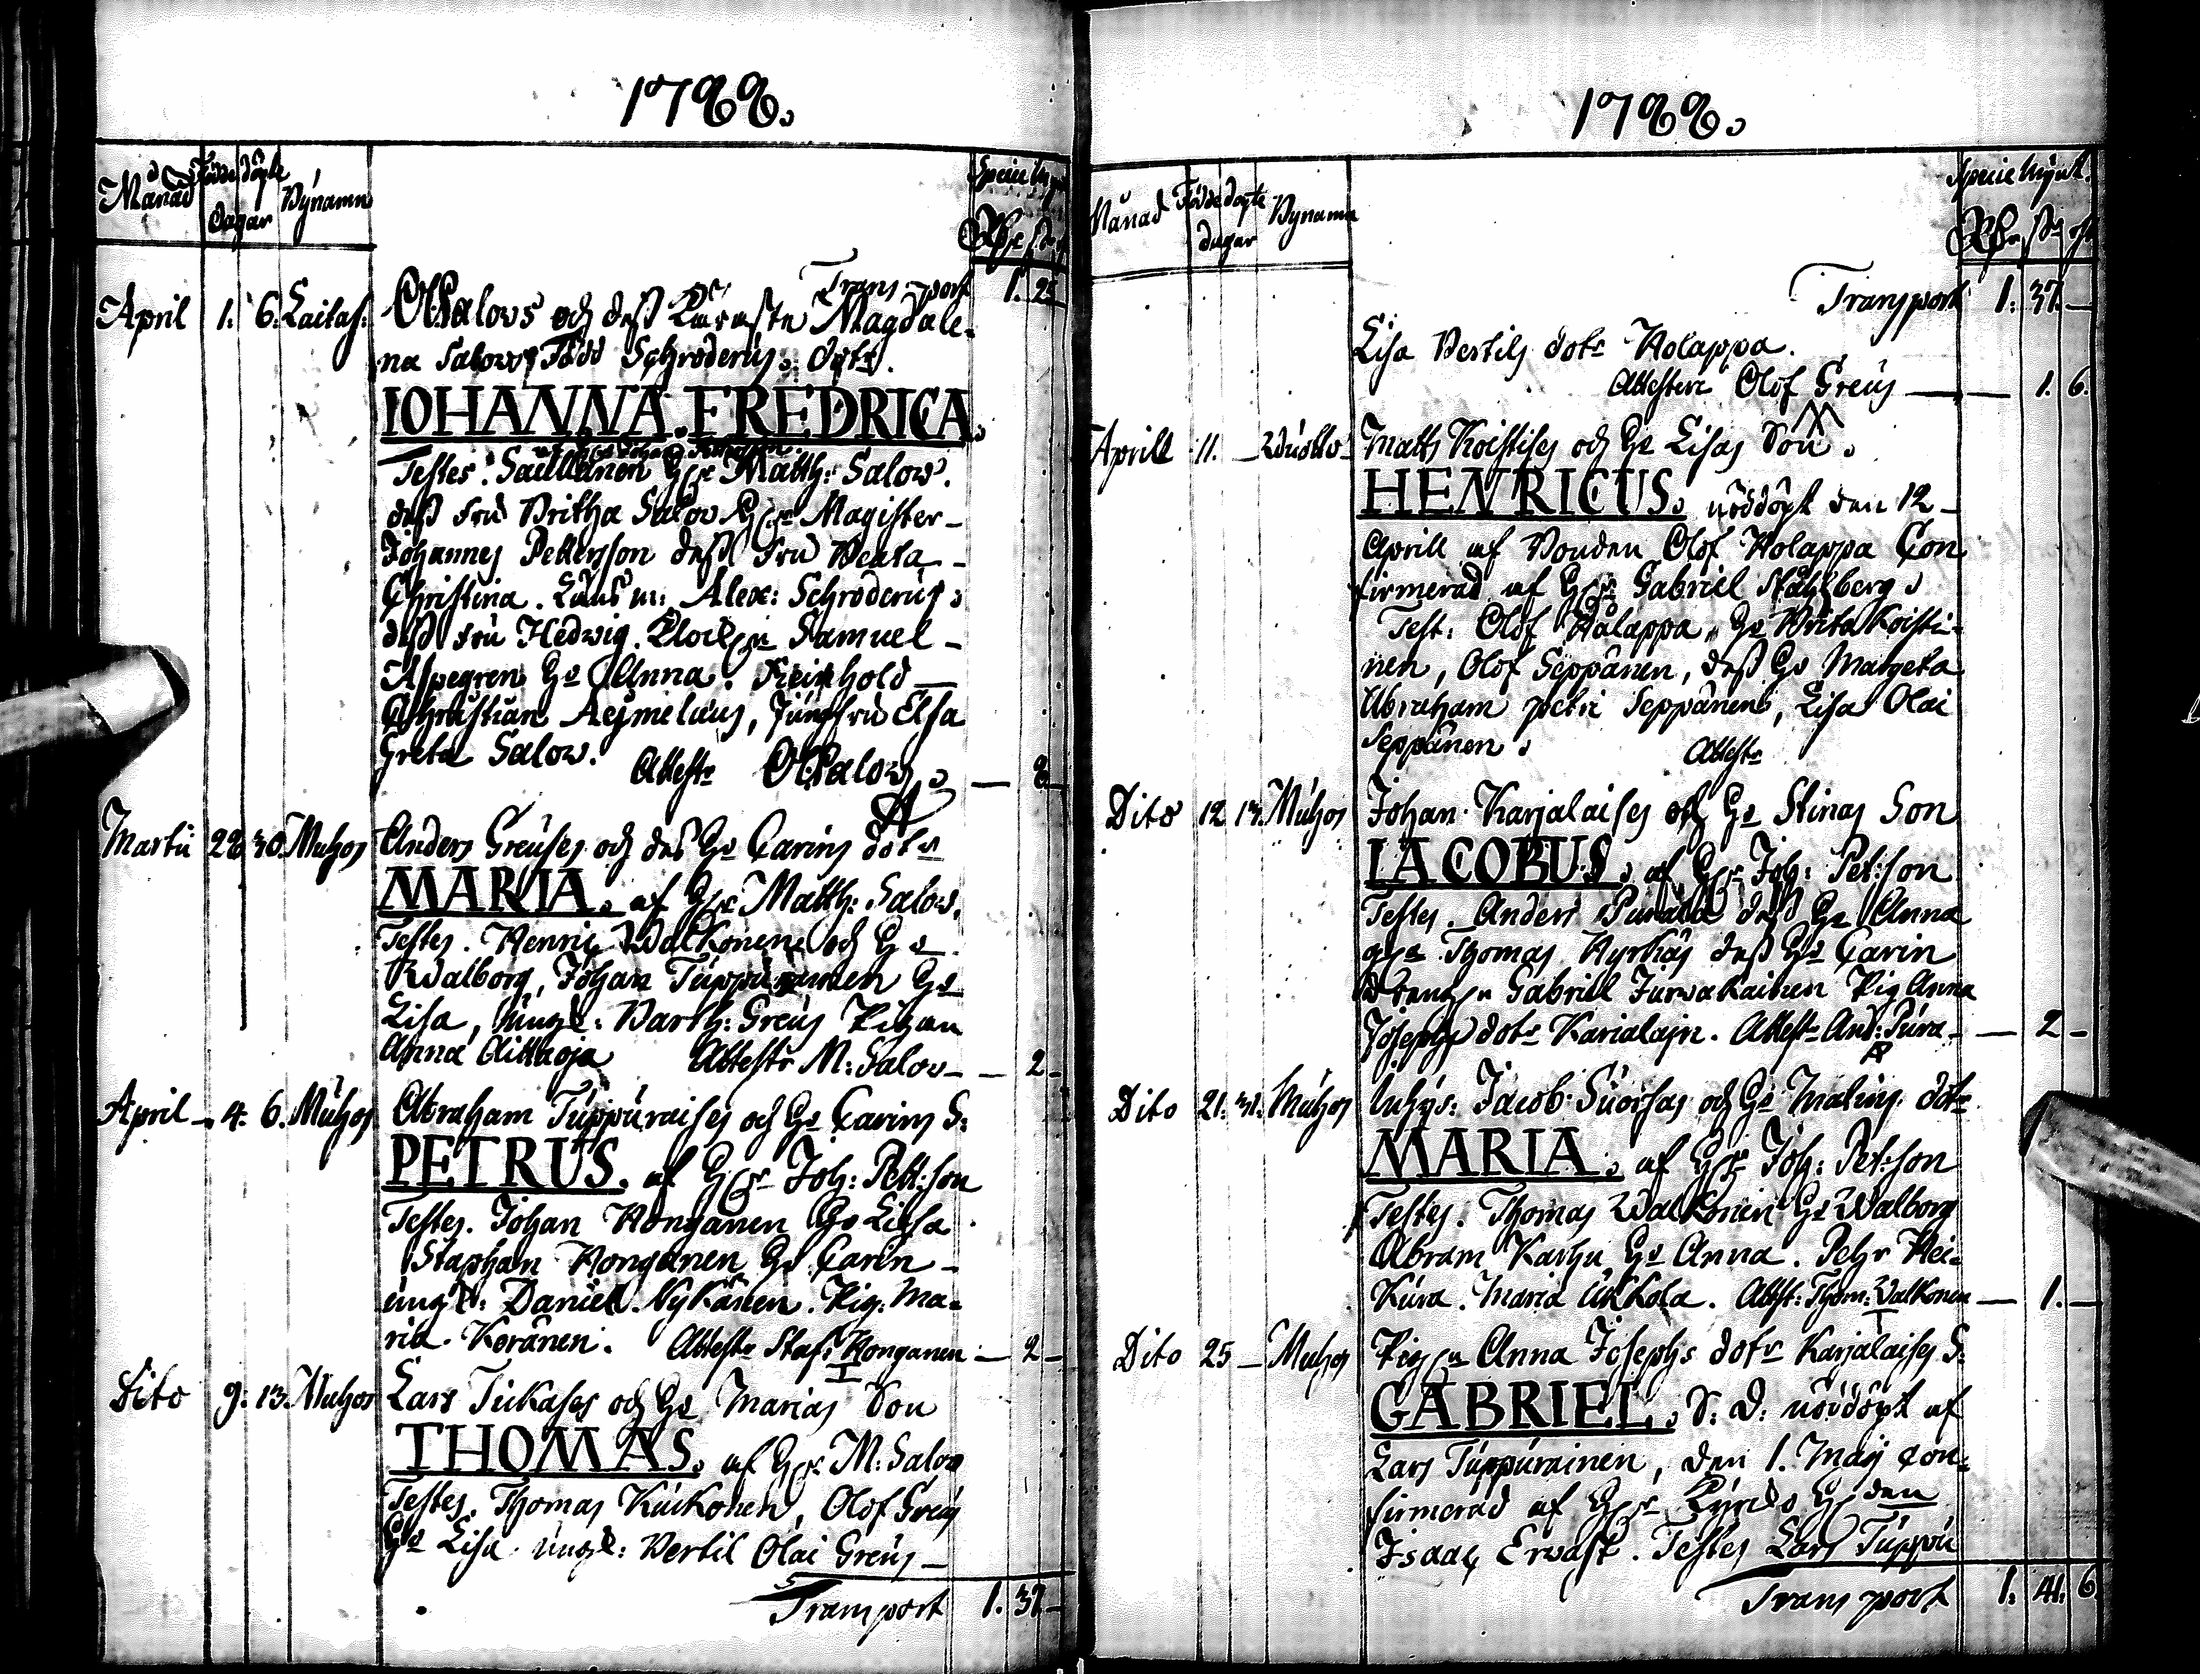 1788.
Månad Födde döpte Dagar Bÿnamn
Specie
Transport 1. 25
April 1. 6. Laitas: OlSalovs och dess Käreste Magdale-
na Salows Född Schroderus: dotr.
IOHANNA FREDRICA.
Testes. Matth: Salow.
dess Fru Britha Salov Magister
Johannes Pettersson dess Fru Beata
Christina. Alex: Schroderus
dess Fru Hedwig. Samuel
Aspegren Hu Anna. Reinhold
Christian Aejmelæus, Jungfru Elsa
Greta Salow. Attestr OlSalow — 8
Martii 28 30. Muhos Anders Greuses och des Hu Carins dotr
MARIA. af Matth: Salow.
Testes. Henric Walkonen och Hu
Walborg, Johan Tuppurainen Hu
Lisa, ungk: Barth: Greus Pigan
Anna Attestr M: Salov — 2
April 4. 6. Muhos Abraham Tuppuraises och Hu Carins S:
PETRUS. af Joh: Pett:son
Testes. Johan Honganen Hu Liisa
Staphan Honganen Hu Carin
ungk: Daniel Nykänen. Pig: Ma-
ria Keränen. Attestr Staf: Honganen — 2
Dito 9. 13. Muhos Lars Tickases och Hu Marias Son
THOMAS. af M: Salow
Testes. Thomas Kuckonen, Olof Greus
Hu Lisa ungk: Bertil Olai Greus
Transport 1. 37
1788.
Månad Födde döpte dagar Bynamn
Specie Mÿnt.
Transport 1. 37. —
Lisa Bertils dotr Holappa.
Attestere Olof Greus — 1. 6.
Aprill 11. Matts Koistises och Hu Lisas Son.
HENRICUS. nöddöpt den 12
Aprill af Bonden Olof Holappa Con
firmerad af Gabriel Ståhlberg
Test: Olof Halappa, Hu Brita Koisti-
nen, Olof Seppänen, dess Hu Margeta
Abraham petri Seppänens, Lisa Olai
Seppänen. Attestr
Dito 12 13. Muhos Johan Karjalaises och Hu Stinas Son
IACOBUS. af Joh: Pet:son
Testes. Anders dess Hu Anna
Thomas Hyrkäs dess Hu Carin
Gabriel Jurvakainen Pig Anna
Josephs dotr Karialajn. Attestr And: Pura — 2 —
Dito 21. 31. Muhos Inhys: Jacob Suorsas och Hu Malins dotr
MARIA. af Joh: Pet:son
Testes. Thomas Walkonen Hu Walborg
Abram Karhu Hu Anna. Pehr Hei-
Kura. Maria Ukkola. Attst: Thom: Valkonen — 1. —
Dito 25 — Muhos Anna Josephs dotr Karjalaises S.
GABRIEL. S: D: nöddöpt af
Lars Tuppurainen, den 1. Maij Con-
firmerad af den
Isaac Ervast. Testes Lars Tuppu
Transport 1. 41. 6